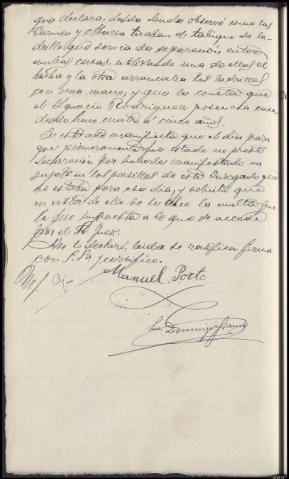 que declara, desde donde observó como las
Carmen y María tiraban el tabique de la-
drillo que servía de separación entre
ambas casas, utilizando una de ellas el
hacha y la otra arrancaba los ladrillos
con sus manos, y que le consta que
el Ignacio Rodriguez posee esa casa
desde hace cuatro o cinco años.
En este acto manifiesta que el dia para
que primeramente fue citado no prestó
declaración por haberle manifestado un
sujeto en los pasillos de este Juzgado que
no estaba para ese dia, y solicita que
en vista de ello se le alce la multa que
le fue impuesta a lo que de accede
por el Sr. Juez.
Asi lo declaró, leida se ratifica firma
con S.Sª y certifico.
M/
Manuel Porto
Luc Dominguez